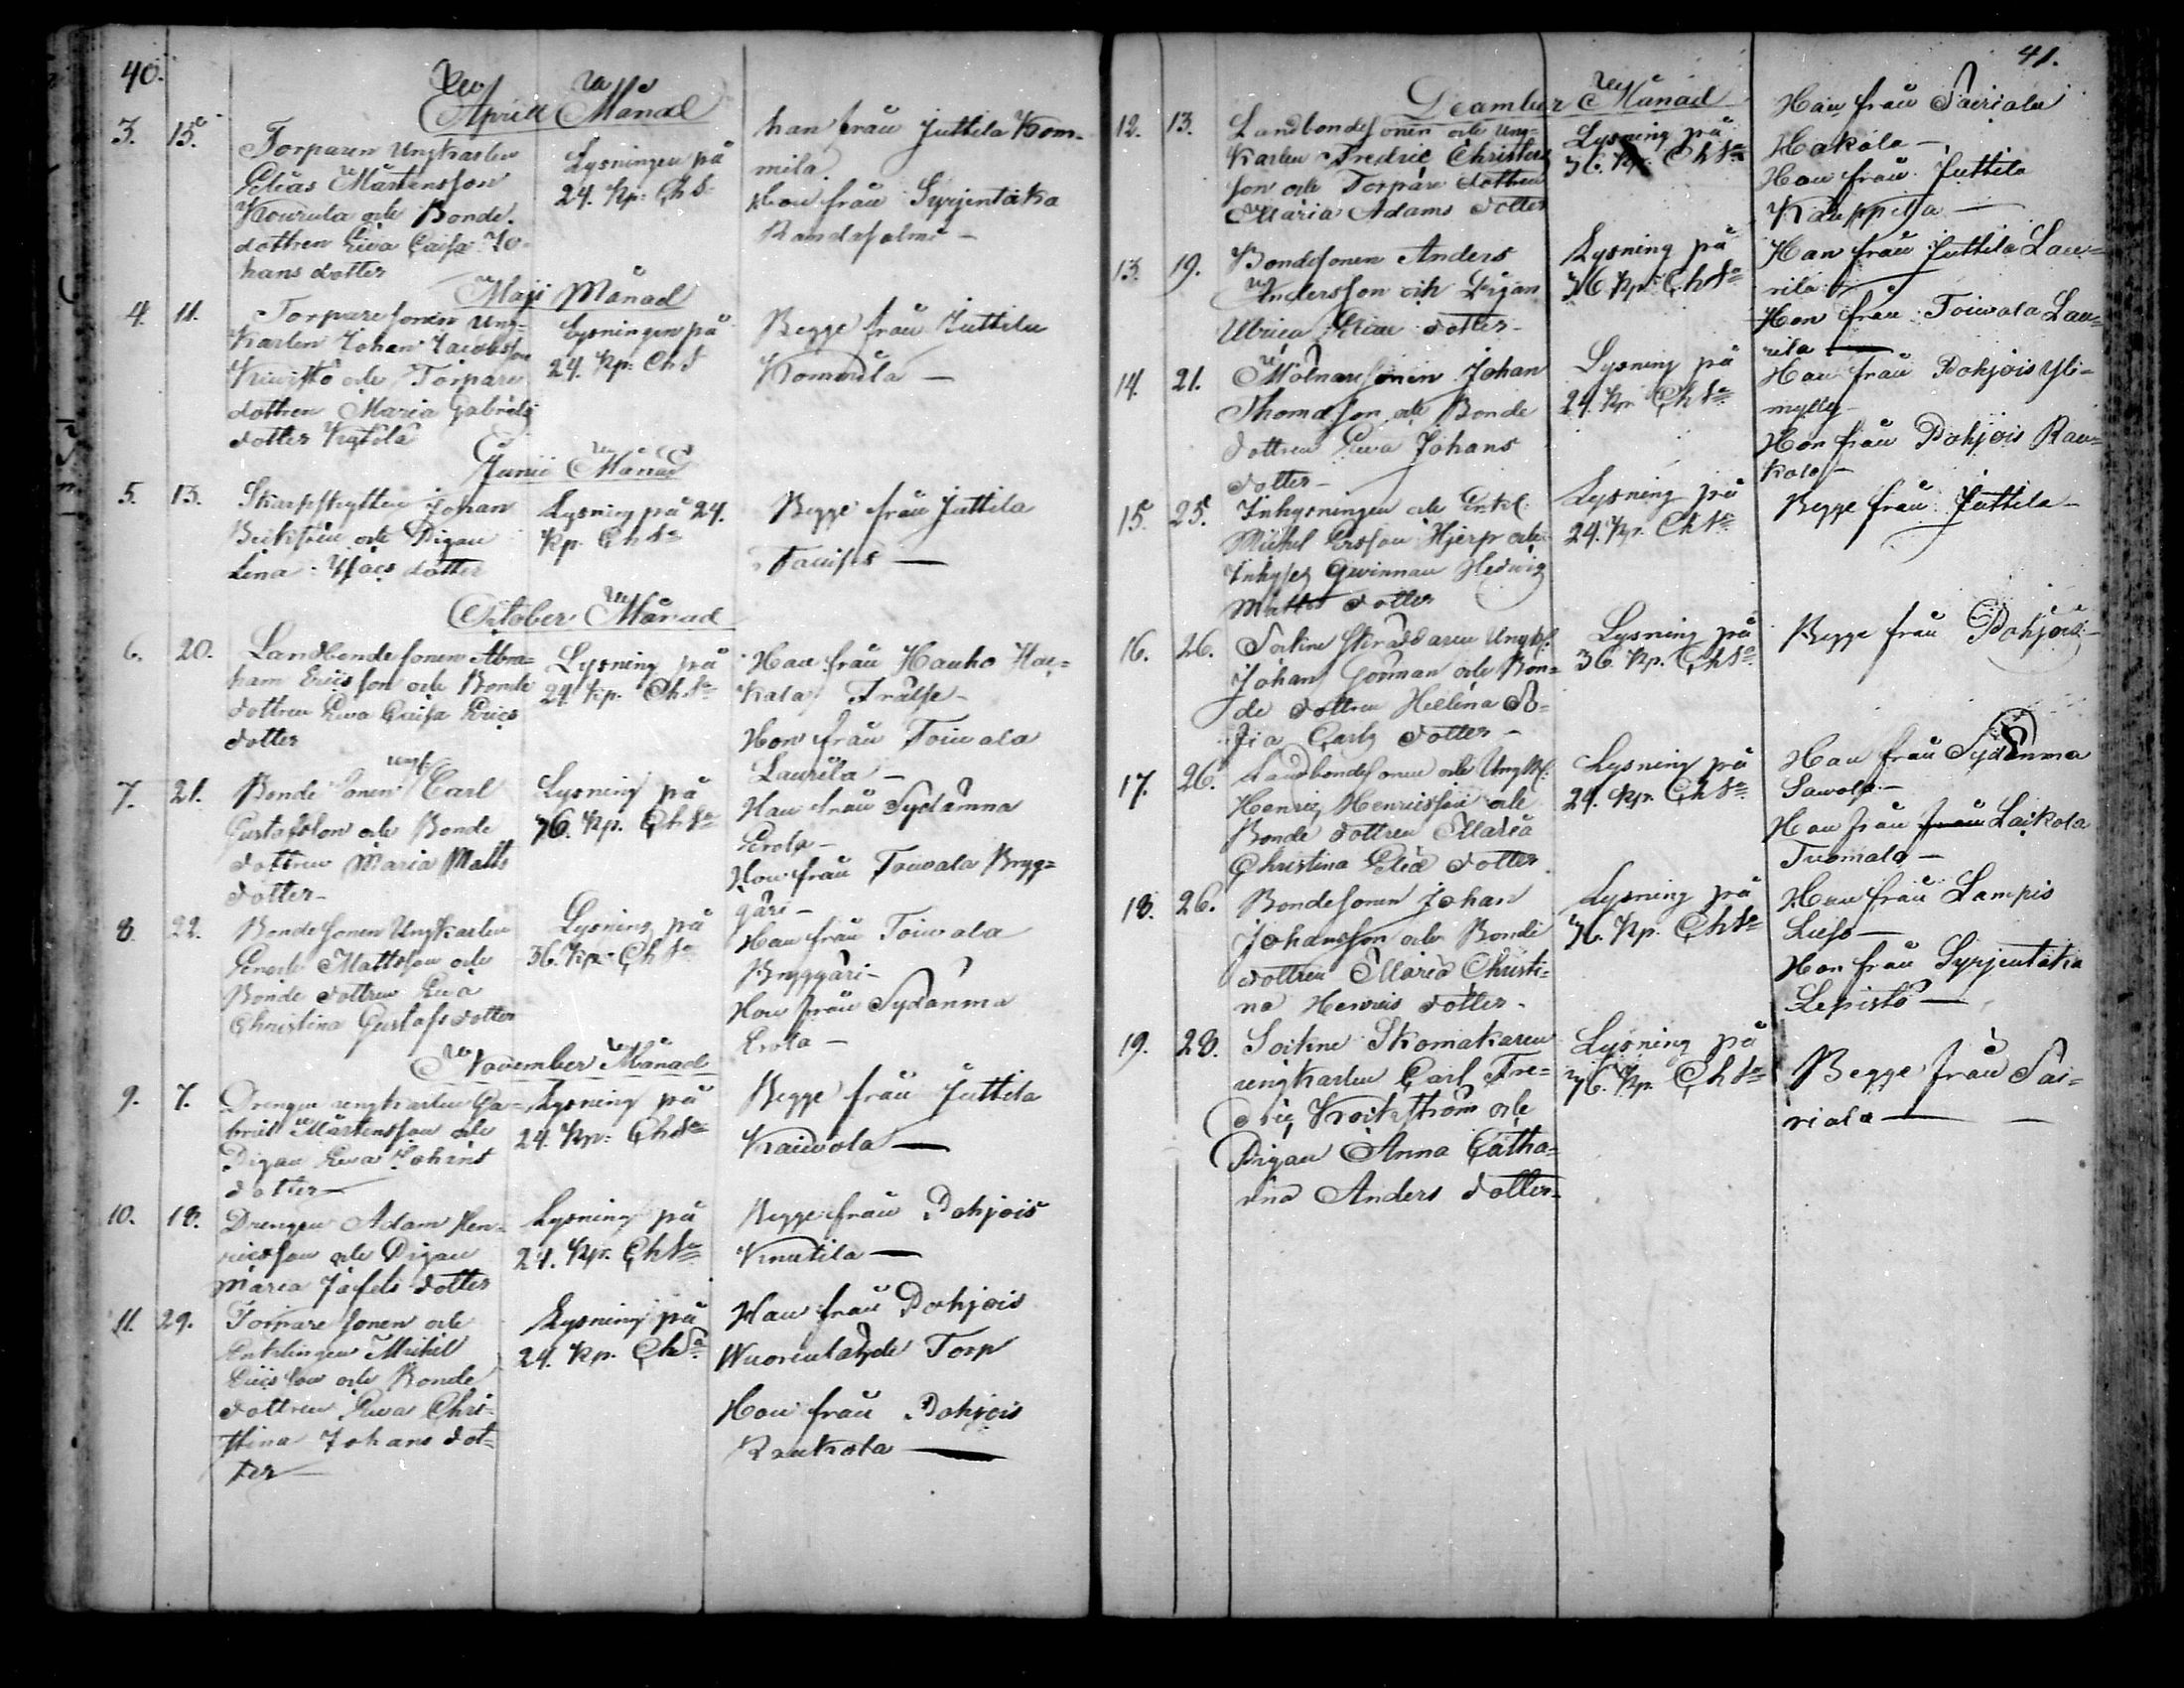 40.
Aprill Månad
3. 15. Torparen Ungkarlen
Elias Mårtensson
Kourula och Bonde
dottren Ewa Caisa Jo-
hans dotter
Lysningen på
24. Kp: Ch S
han från Juttila Kom-
mila
Hon från Syrjentaka
Randasalmi —
Maji Månad
4. 11. Torpare sonen Ung-
karlen Johan Jacobsson
Kiwistö och Torpare
dottren Maria Gabriels
dotter Kylölä
Lysningen på
24. Kp: Ch S
Begge från Juttila
Kommila —
Junii Månad
5. 13. Skarpskytten Johan
och Pigan
Lena Isacs dotter
Lysning på 24.
Kp. Ch Sr
Begge från Juttila
October Månad
6. 20. Landbonde sonen Abra-
ham Ericsson och Bonde
dottren Ewa Caisa Erics
dotter
Lysning på
24. Kp. Ch. Sr
Han från Hauho Hau-
kala Frälse —
Hon från Toiwala
Laurila —
7. 21. Bonde sonen ungk. Carl
Gustafsson och Bonde
dottren Maria Matts
dotter —
Lysning på
36. Kp. Ch Sr
Han från Sydänma
Erola —
Hon från Toiwala Brygg-
äri —
8. 22. Bondesonen Ungkarlen
Enoch Mattsson och
Bonde dottren Ewa
Christina Gustafs dotter
Lysning på
36. Kp. Ch Sr
Han från Toiwala
Bryggäri —
Hon från Sydänma
Erola —
November Månad
9. 7. Drengen ungkarlen Ga-
briel Mårtensson och
Pigan Ewa Johans
dotter —
Lysning på
24. Kp: Ch Sr
Begge från Juttila
Kaiwola —
10. 18. Drengen Adam Hen-
ricsson och Pigan
Maria Josefs dotter
Lysning på
24. Kp. Ch Sr
Begge från Pohjois
Knutila —
11. 29. Torpare sonen och
Enklingen Michel
Ericsson och Bonde
dottren Ewa Chri-
stina Johans dot-
ter —
Lysning på
24. Kp. Ch Sr
Han från Pohjois
Torp
Hon från Pohjois
Raukola —
41.
December Månad
12. 13. Landbondesonen och Ung-
karlen Fredric Christers
son och Torpare dottren
Maria Adams dotter
Lysning på
36. Kp. Ch Sr
Han från Pairiala
Hakala —
Hon från Juttila
Kauppila —
13. 19. Bondesonen Anders
Andersson och Pigan
Ulrica Elias dotter —
Lysning på
36. Kp. Ch Sr
Han från Juttila Lau-
rila —
Hon från Toiwala Lau-
rila —
14. 21. Mölnaresonen Johan
Thomasson och Bonde
dottren Ewa Johans
dotter —
Lysning på
24. Kp. Ch Sr
Han från Pohjois Yli-
mylly —
Hon från Pohjois Rau-
kola —
15. 25. Inhysningen och Enkl.
Michel Ersson Hjerp och
Inhyses Qwinnan Hedwig
Matts dotter
Lysning på
24. Kp. Ch Sr
Begge från Juttila —
16. 26. Sockne Skräddaren Ungk.
Johan Forman och Bon-
de dottren Helena So-
fia Carls dotter —
Lysning på
36. Kp. Ch Sr
Begge från Pohjois —
17. 26. Landbondesonen och Ungk.
Henric Henricsson och
Bonde dottren Maria
Christina Elias dotter
Lysning på
24. Kp. Ch Sr
Han från Sydänma
Sawola —
Hon från från Laikola
Tuomala —
18. 26. Bondesonen Johan
Johansson och Bonde
dottren Maria Christi-
na Henrics dotter —
Lysning på
36. Kp. Ch Sr
Han från Lampis
Hon från Syrjentaka
Lepistö —
19. 28. Sockne Skomakaren
ungkarlen Carl Fre-
dric Krookström och
Pigan Anna Catha-
rina Anders dotter —
Lysning på
36. Kp. Ch Sr
Begge från Pai-
riala —